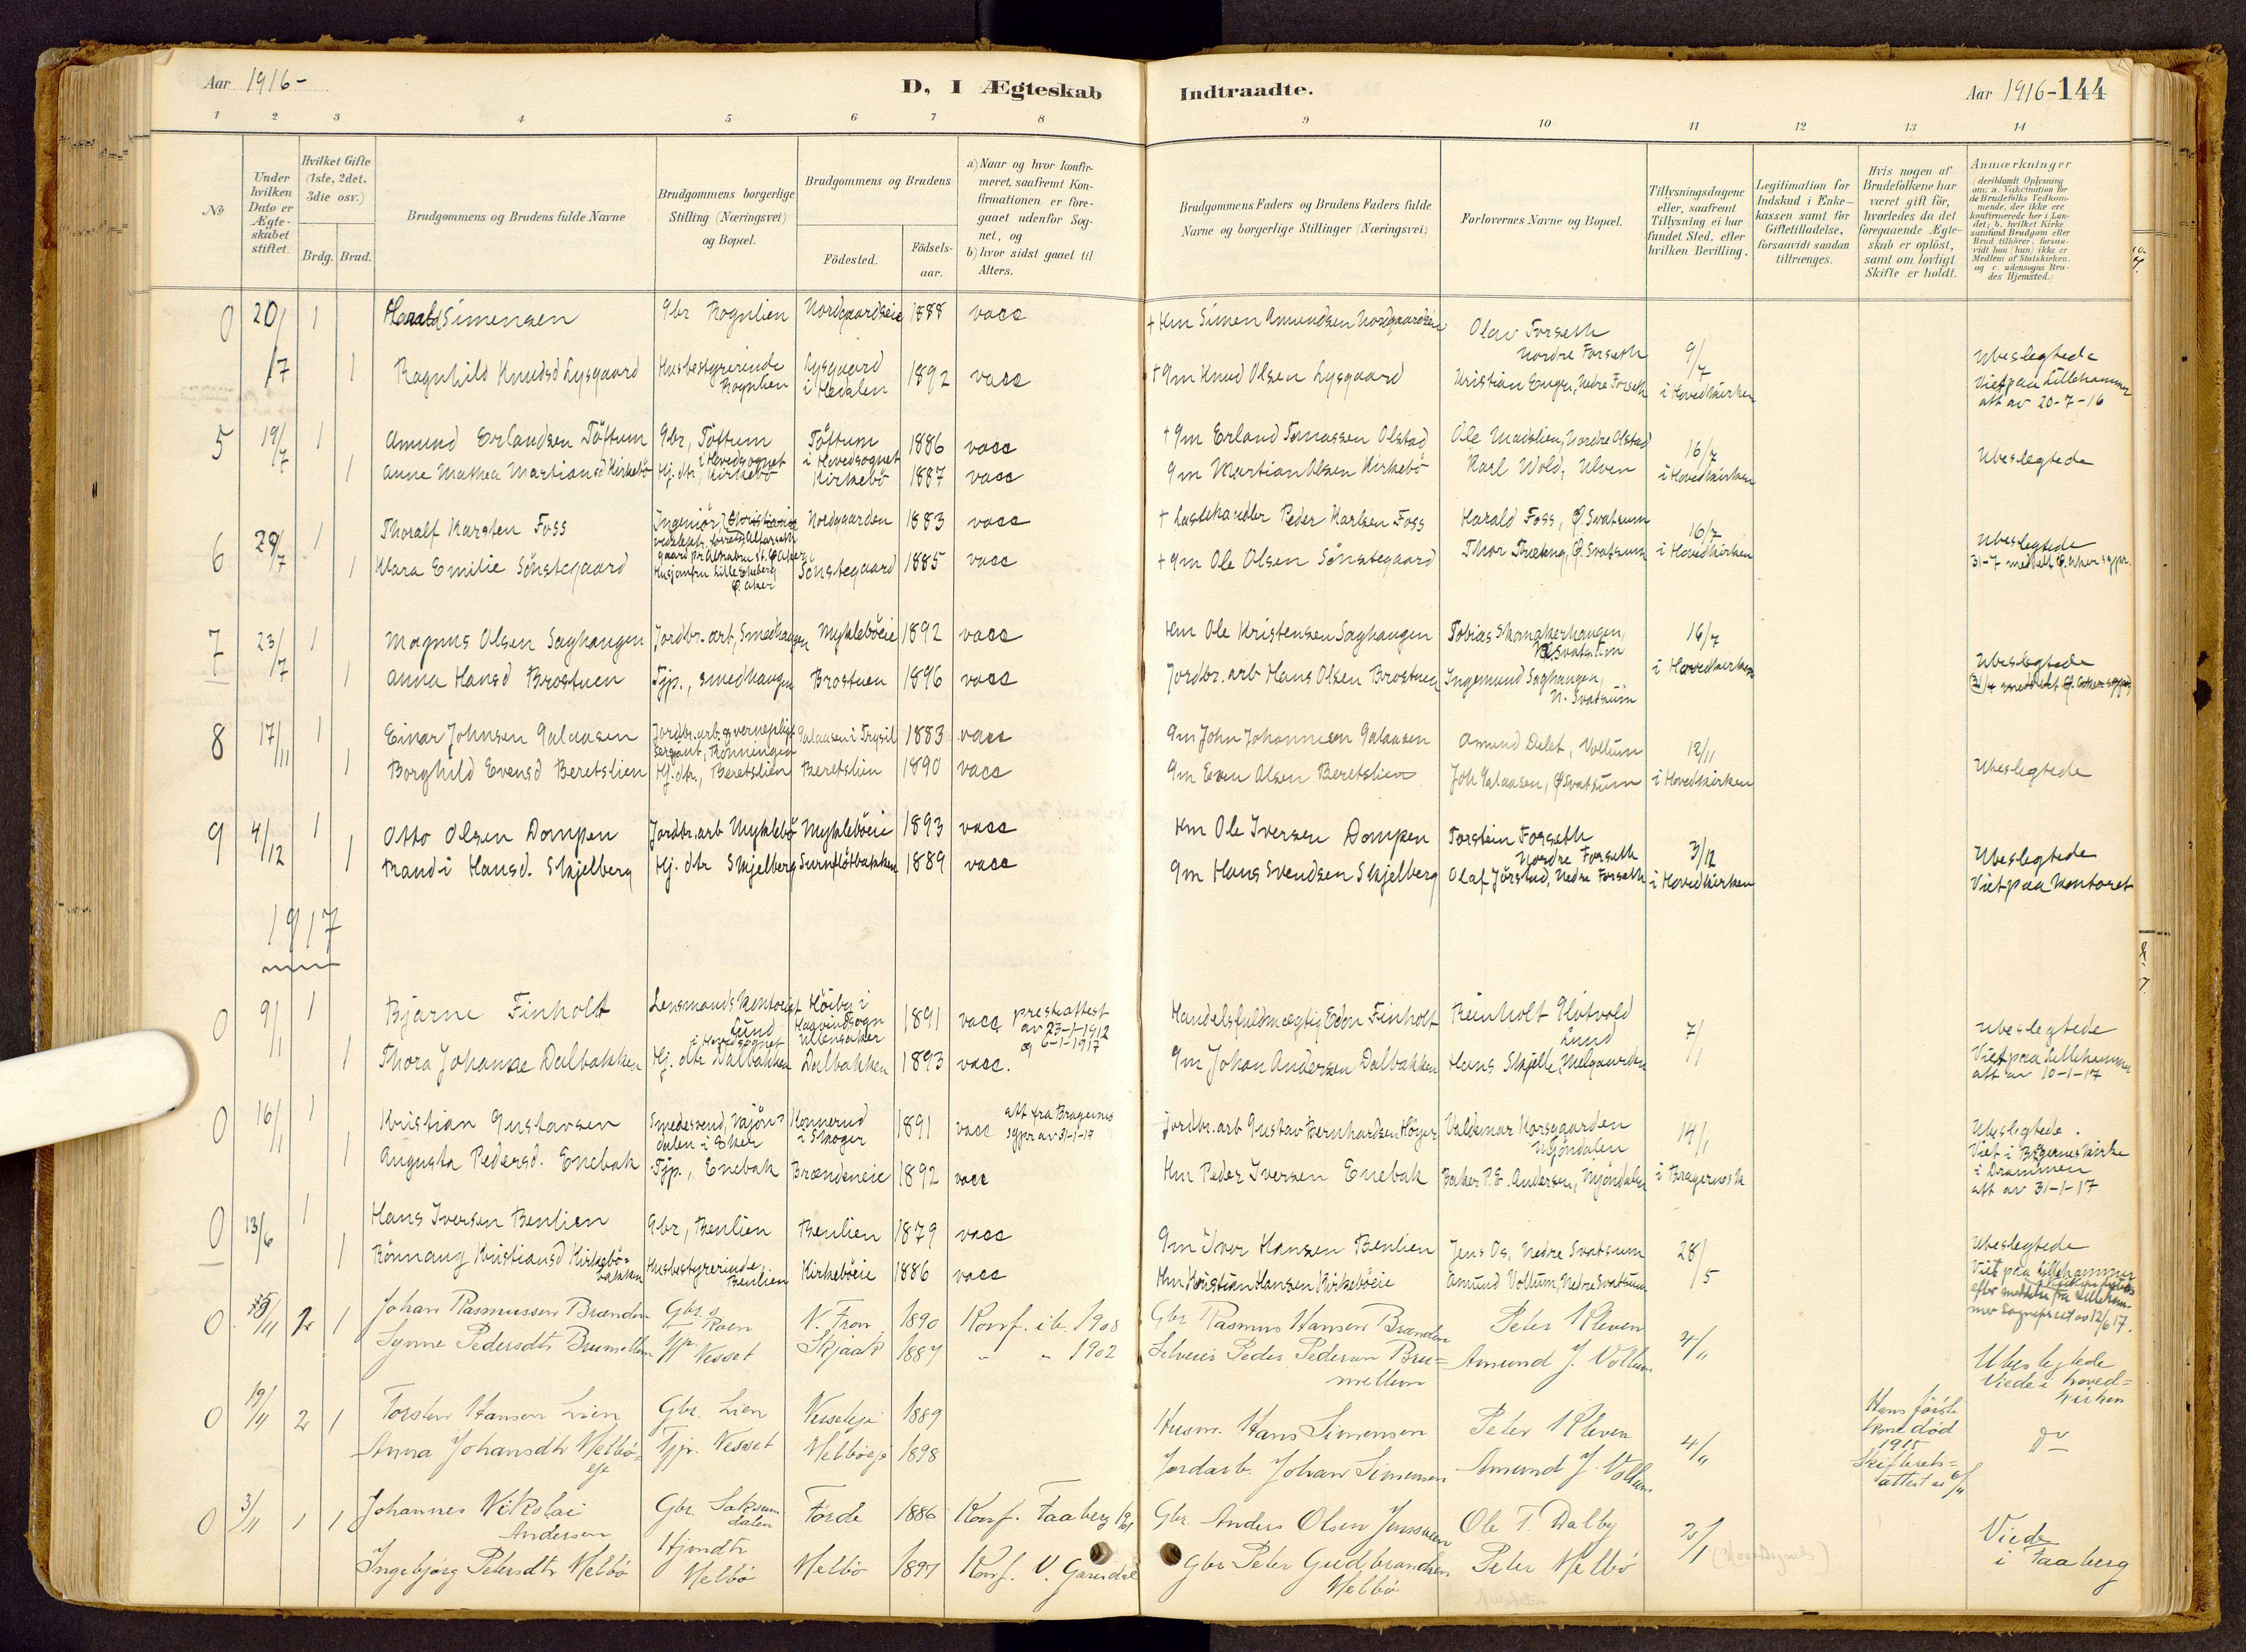 Aar 1916- D, I Ægteskab Indtraadte. Aar 1916-144
1 2 3 4 5 6 7 8 9 10 11 12 13 14
No
Under hvilken Dato er Ægte-skabet stiftet.
Hvilket Gifte (1ste, 2det, 3die osv.)
Brdg. Brud.
Brudgommens og Brudens fulde Navne
Brudgommens borgerlige Stilling (Næringsvei) og Bopæl.
Brudgommens og Brudens
Födested. Födsels-aar.
a) Naar og hvor konfir-meret, saafremt Kon-firmationen er fore-gaaet udenfor Sog-net, og
b) hvor sidst gaaet til Alters.
Brudgommens Faders og Brudens Faders fulde Navne og borgerlige Stillinger (Næringsvei)
Forlovernes Navne og Bopæl.
Tillysningsdagene eller, saafremt Tillysning ei har fundet Sted, efter hvilken Bevilling.
Legitimation for Indskud i Enke-kassen samt for Giftetilladelse, forsaavidt saadan tiltrænges.
Hvis nogen af Brudefolkene har været gift för, hvorledes da det foregaaende Ægte-skab er oplöst, samt om lovligt Skifte er holdt.
Anmærkninger (deriblandt Oplysning om: a. Vakcination for de Brudefolks Vedkom-mende, der ikke ere konfirmerede her i Lan-det; b. hvilket Kirke-samfund Brudgom eller Brud tilhörer, forsaa-vidt han (hun) ikke er Medlem af Statskirken. og c. udensogns Bru-des Hjemsted.)
0 20/7 1 Harald Simensen Gbr Rognlien Nordgaardseie 1888 vacc + Hm Simen Amundsen Nordgaardseie Olav Forseth Nordre Forseth 9/7
1 Ragnhild Knudsd Lysgaard Husbestyrerinde Rognlien Lysgaard i Hedalen 1892 vacc + Gm Knud Olsen Lysgaard Kristian Enger, Nedre Forseth i Hovedkirken Ubeslegtede Viet paa Lillehammer att av 20-7-16
5 19/7 1 Amund Erlandsen Töftum Gbr, Töftum i Hovedsognet Töftum i Hovedsognet 1886 vacc + Gm Erland Tomassen Olstad Ole Madslien, Nordre Olstad 16/7
1 Anne Mathea Martiansd Kirkebö Hj. dtr, Kirkebö Kirkebö 1887 vacc Gm Martian Olsen Kirkebö Karl Wold, Ulven i Hovedkirken Ubeslegtede
6 29/7 1 Thoralf Karsten Foss Ingeniör, Christiania Nordgaarden 1883 vacc + Lastehandler Peder Karlsen Foss Harald Foss, Ø. Svatsum 16/7
1 Klara Emilie Sönstegaard Husjomfru Lille Ekeberg Ø. Aker Sönstegaard 1885 vacc + Gm Ole Olsen Sönstegaard Thor Træteng, Ø. Svatsum i Hovedkirken Ubeslegtede 31-7 meddelt Ø. Aker sgpr.
7 23/7 1 Magnus Olsen Saghaugen Jordbr. arb, Smedhaugen Mykleböeie 1892 vacc Hm Ole Kristensen Saghaugen Tobias Skomakerhaugen, Svatsum 16/7
1 Anna Hansd Brostuen Tjp., Smedhaugen Brostuen 1896 vacc Jordbr. arb Hans Olsen Brostuen Ingemund Saghaugen, N. Svatsum i Hovedkirken Ubeslegtede
8 17/11 1 Einar Johnsen Galaasen Jordbr. arb. og vernepligt sergsant, Rönningen Galaasen i Trysil 1883 vacc Gm John Johannesen Galaasen Amund Dalet, Vollum 12/11
1 Borghild Evensd Beretslien Hj. dtr., Beretslien Beretslien 1890 vacc Gm Even Olsen Beretslien Joh Galaasen, Ø Svatsum i Hovedkirken Ubeslegtede
9 4/12 1 Otto Olsen Dompen Jordbr. arb Myklebö Mykleböeie 1893 vacc Hm Ole Iversen Dompen Torstein Forseth Nordre Forseth 3/12
1 Randi Hansd. Skjelberg Hj. dtr Skjelberg Surnflötbakken 1889 vacc Gm Hans Svendsen Skjelberg Olaf Jörstad, Nedre Forseth i Hovedkirken Ubeslegtede Viet paa Kontoret
1917
0 9/1 1 Bjarne Finholt Lensmandskontorist Lund i Hovedsognet Höiby i Hagvindsogn Ullensaker 1891 vacc prestattest av 23-1-1912 og 6-1-1917 Handelsfuldmægtig Edv Finholt Reinholt Hvitvold Lund 7/1
1 Thora Johanne Dalbakken Hj. dtr Dalbakken Dalbakken 1893 vacc. Gm Johan Andersen Dalbakken Hans Skjelle, Melgaarden Ubeslegtede Viet paa Lillehammer att av 10-1-17
0 16/1 1 Kristian Gustavsen Smedesvend, Mjöndalen i Eker Konnerud i Skoger 1891 vacc att fra Bragernes sgpr av 31-1-17 Jordbr. arb Gustav Bernhardsen Höger Valdemar Korsgaarden Mjöndalen 14/1
1 Augusta Pedersd. Enebak Tjp., Enebak Brændeneie 1892 vacc Hm Peder Iversen Enebak Baker P. E. Andersen, Mjöndalen i Bragernes k Ubeslegtede. Viet i Bragernes Kirke i Drammen att av 31-1-17
0 13/6 1 Hans Iversen Benlien Gbr, Benlien Benlien 1879 vacc Gm Iver Hansen Benlien Jens Os, Nedre Svatsum 28/5
1 Rönnaug Kristiansd Kirkebö-bakken Husbestyrerinde, Benlien Kirkeböeie 1886 vacc Hm Kristian Hansen, Kirkeböeie Amund Vollum, Nedre Svatsum Ubeslegtede Viet paa Lillehammer efter meddelse fra Lilleham-mer Sogneprest av 12/6 17.
0 /11 1 Johan Rasmussen Brænden Gbr s Roen N. Fron 1890 Konf. ib. 1908 Gbr Rasmus Hansen Brænden Peter Kleven 4/11
Synne Pedersdtr Brumellem Tjp. Nesset Skjaak 1887 " " 1902 Selveier Peder Pedersen Bru=mellem Amund J. Vollum Ubeslegtede Viede i hoved=kirken
0 19/11 2 1 Torsten Hansen Lien Gbr. Lien Nesseteje 1889 Husm. Hans Simensen Peter Kleven 4/11 Hans förste kone död 1915 Skifterets=attest av /11
Anna Johansdtr Melbö=eje Tjp. Nesset Melböeje 1898 Jordarb. Johan Simensen Amund J. Vollum do
0 3/11 1 1 Johannes Nikolai Andersen Gbr. Saksum dalen Förde 1886 Konf. Faaberg 1901 Gbr. Anders Olsen Jenssveen Ole T. Dalby
Ingebjörg Petersdtr Melbö Hjemdtr Melbö Melbö 1897 Konf. V. Gausdal Gbr Peter Gudbrandsen Melbö Peter Melbö Viede i Faaberg